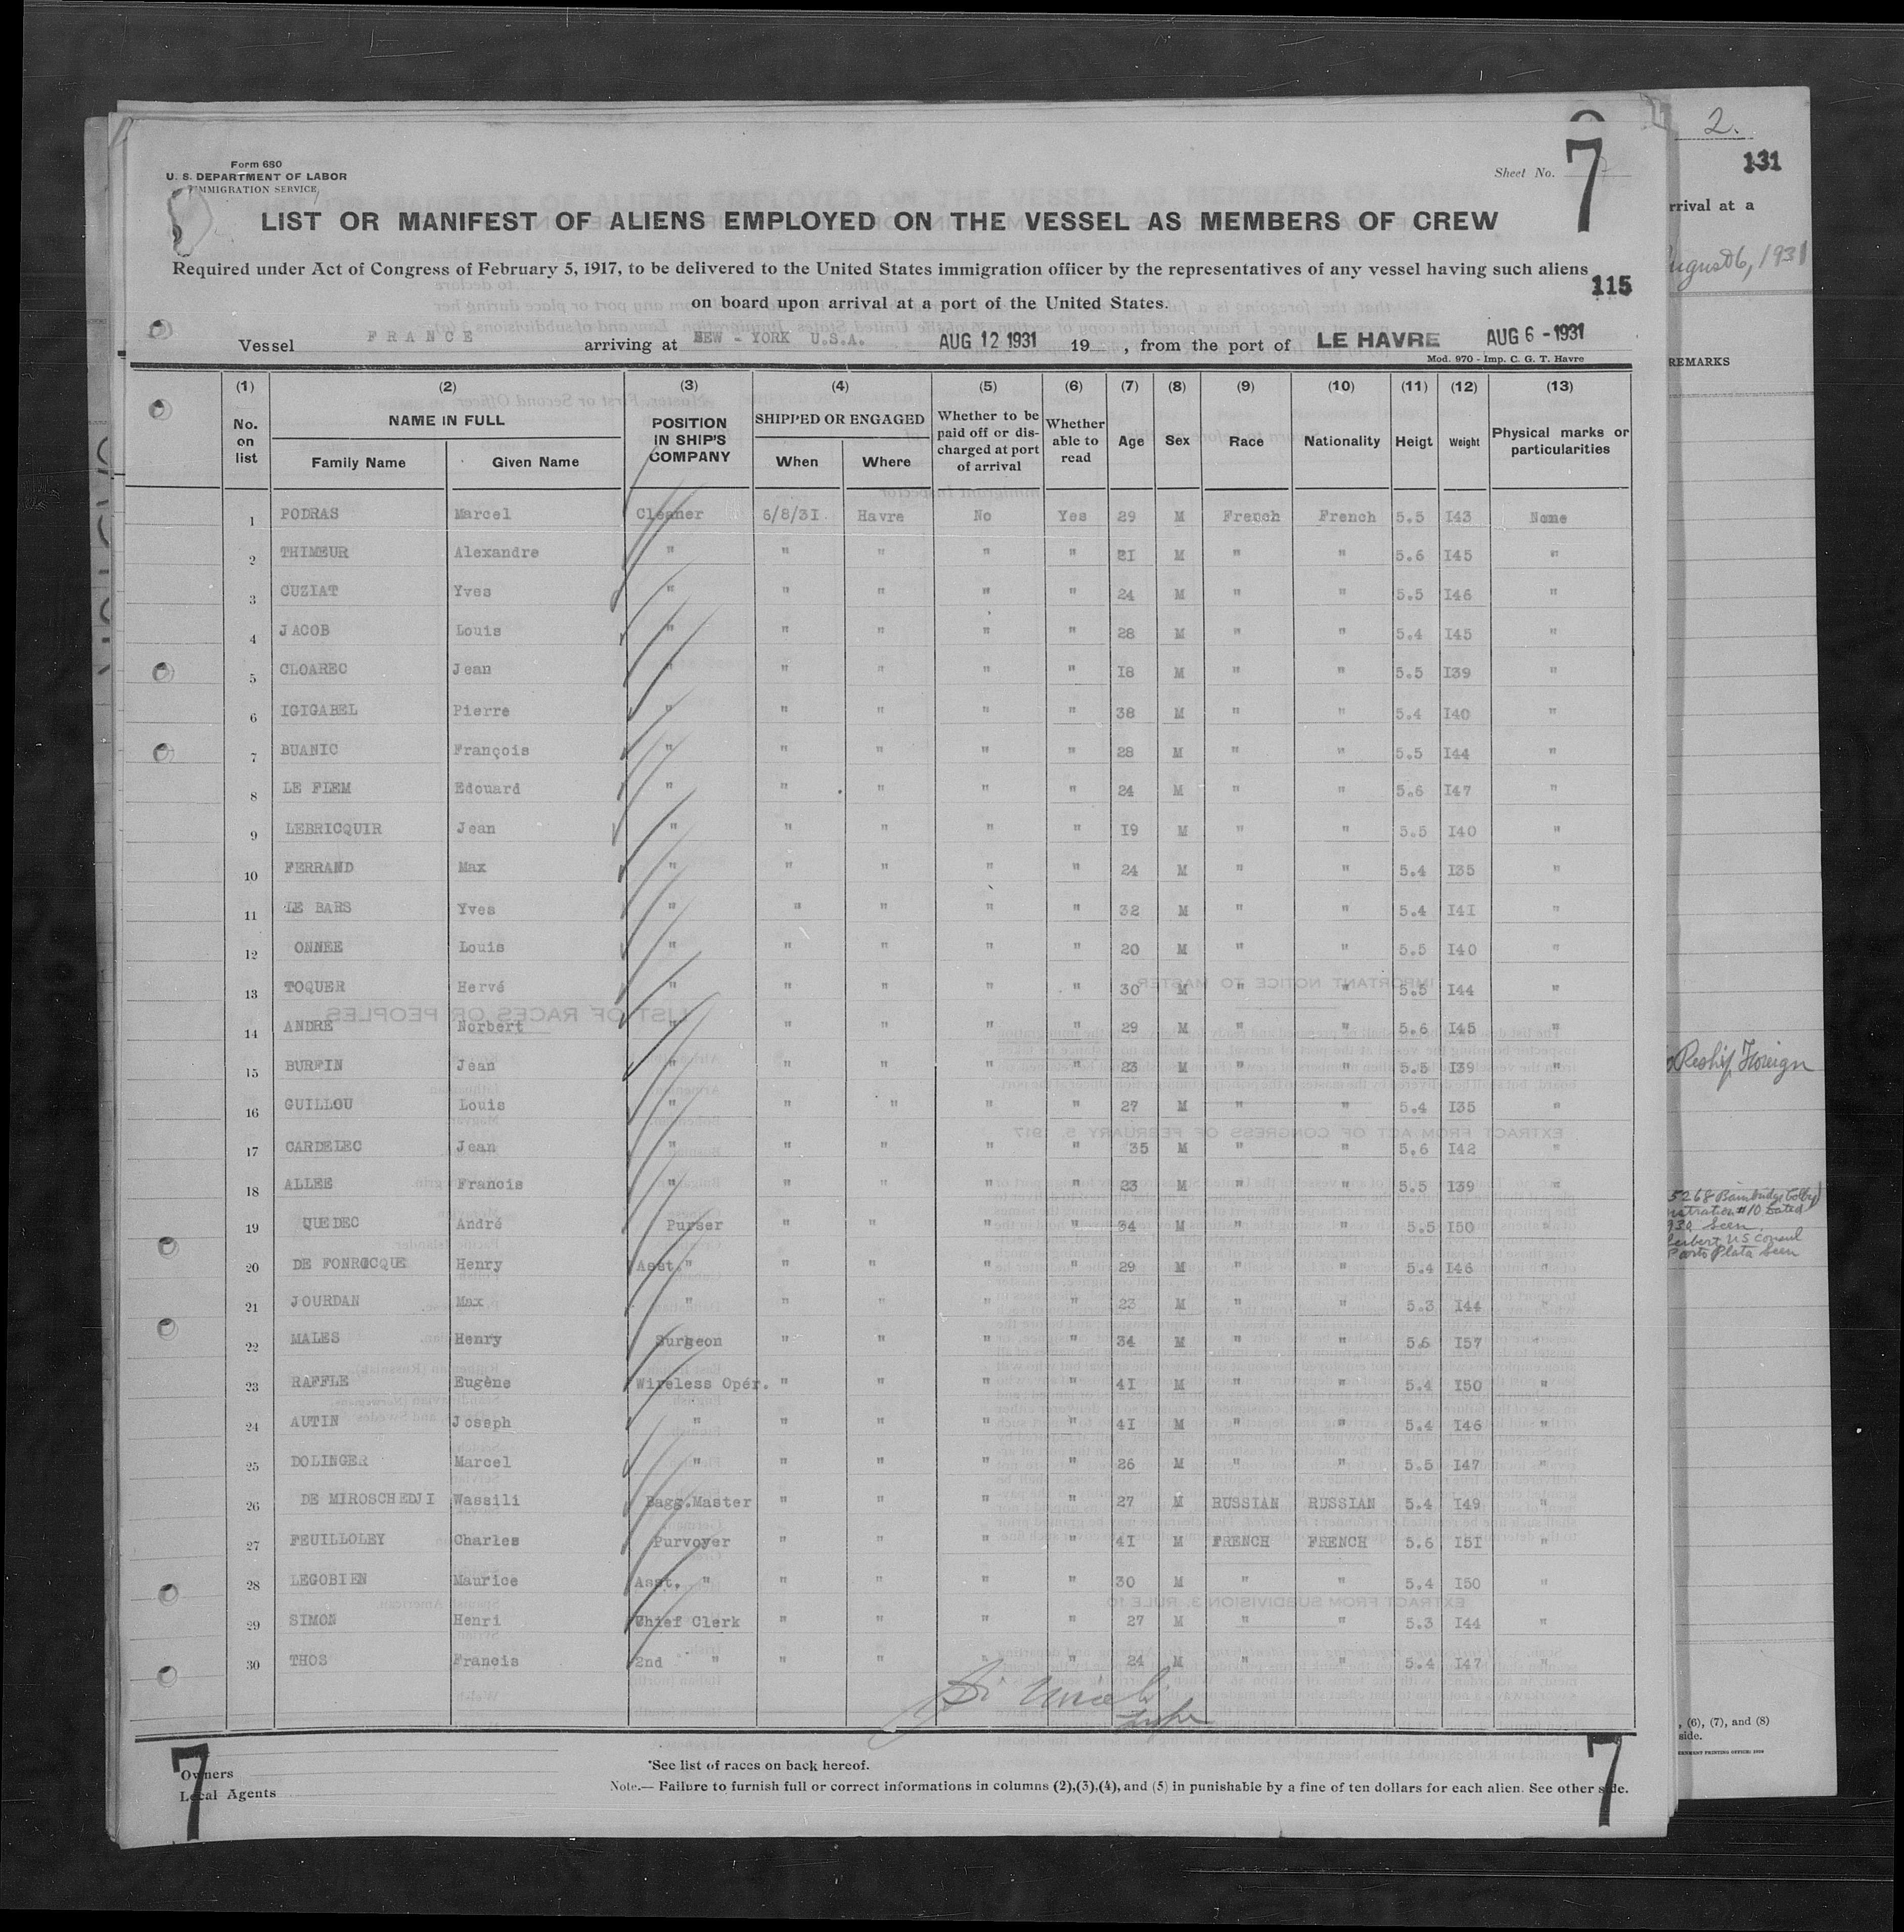 Form 680
U. S. DEPARTMENT OF LABOR
IMMIGRATION SERVICE
Sheet No. 7
7
LIST OR MANIFEST OF ALIENS EMPLOYED ON THE VESSEL AS MEMBERS OF CREW
Required under Act of Congress of February 5, 1917, to be delivered to the United States immigration officer by the representatives of any vessel having such aliens
on board upon arrival at a port of the United States.
115
Vessel FRANCE arriving at NEW - YORK U.S.A. AUG 12 1931 19 , from the port of LE HAVRE AUG 6 - 1931
Mod. 970 - Imp. C. G. T. Havre
(1) (2) (3) (4) (5) (6) (7) (8) (9) (10) (11) (12) (13)
No. on list NAME IN FULL Family Name Given Name POSITION IN SHIP'S COMPANY SHIPPED OR ENGAGED When Where Whether to be paid off or discharged at port of arrival Whether able to read Age Sex Race Nationality Heigt Weight Physical marks or particularities
1 PODRAS Marcel Cleaner 6/8/31 Havre No Yes 29 M French French 5.5 I43 None
2 THIMEUR Alexandre " " " " " 2I M " " 5.6 I45 "
3 CUZIAT Yves " " " " " 24 M " " 5.5 I46 "
4 JACOB Louis " " " " " 28 M " " 5.4 I45 "
5 CLOAREC Jean " " " " " I8 M " " 5.5 I39 "
6 IGIGABEL Pierre " " " " " 38 M " " 5.4 I40 "
7 BUANIC François " " " " " 28 M " " 5.5 I44 "
8 LE FLEM Edouard " " " " " 24 M " " 5.6 I47 "
9 LEBRICQUIR Jean " " " " " I9 M " " 5.5 I40 "
10 FERRAND Max " " " " " 24 M " " 5.4 I35 "
11 LE BARS Yves " " " " " 32 M " " 5.4 I4I "
12 ONNEE Louis " " " " " 20 M " " 5.5 I40 "
13 TOQUER Hervé " " " " " 30 M " " 5.5 I44 "
14 ANDRE Norbert " " " " " 29 M " " 5.6 I45 "
15 BURFIN Jean " " " " " 23 M " " 5.5 I39 "
16 GUILLOU Louis " " " " " 27 M " " 5.4 I35 "
17 CARDELEC Jean " " " " " 35 M " " 5.6 I42 "
18 ALLEE Francis " " " " " 23 M " " 5.5 I39 "
19 QUEDEC André Purser " " " " 34 M " " 5.5 I50 "
20 DE FONROCQUE Henry Asst. " " " " " 29 M " " 5.4 I46 "
21 JOURDAN Max " " " " " 23 M " " 5.3 I44 "
22 MALES Henry Surgeon " " " " 34 M " " 5.6 I57 "
23 RAFFLE Eugène Wireless Opér. " " " " 4I M " " 5.4 I50 "
24 AUTIN Joseph " " " " " 4I M " " 5.4 I46 "
25 DOLINGER Marcel " " " " " 26 M " " 5.5 I47 "
26 DE MIROSCHEDJI Wassili Bagg.Master " " " " 27 M RUSSIAN RUSSIAN 5.4 I49 "
27 FEUILLOLEY Charles Purvoyer " " " " 4I M FRENCH FRENCH 5.6 I5I "
28 LEGOBIEN Maurice Asst. " " " " " 30 M " " 5.4 I50 "
29 SIMON Henri Chief Clerk " " " " 27 M " " 5.3 I44 "
30 THOS Francis 2nd " " " " " 24 M " " 5.4 I47 "
*See list of races on back hereof.
Owners
Local Agents
Note.— Failure to furnish full or correct informations in columns (2),(3),(4), and (5) in punishable by a fine of ten dollars for each alien. See other side.
7
7
2.
131
rrival at a
August 6, 1931
REMARKS
Reship Foreign
5268 Bainbridge Colby
#10 dated
seen
US Consul
Porto Plata seen
, (6), (7), and (8)
side.